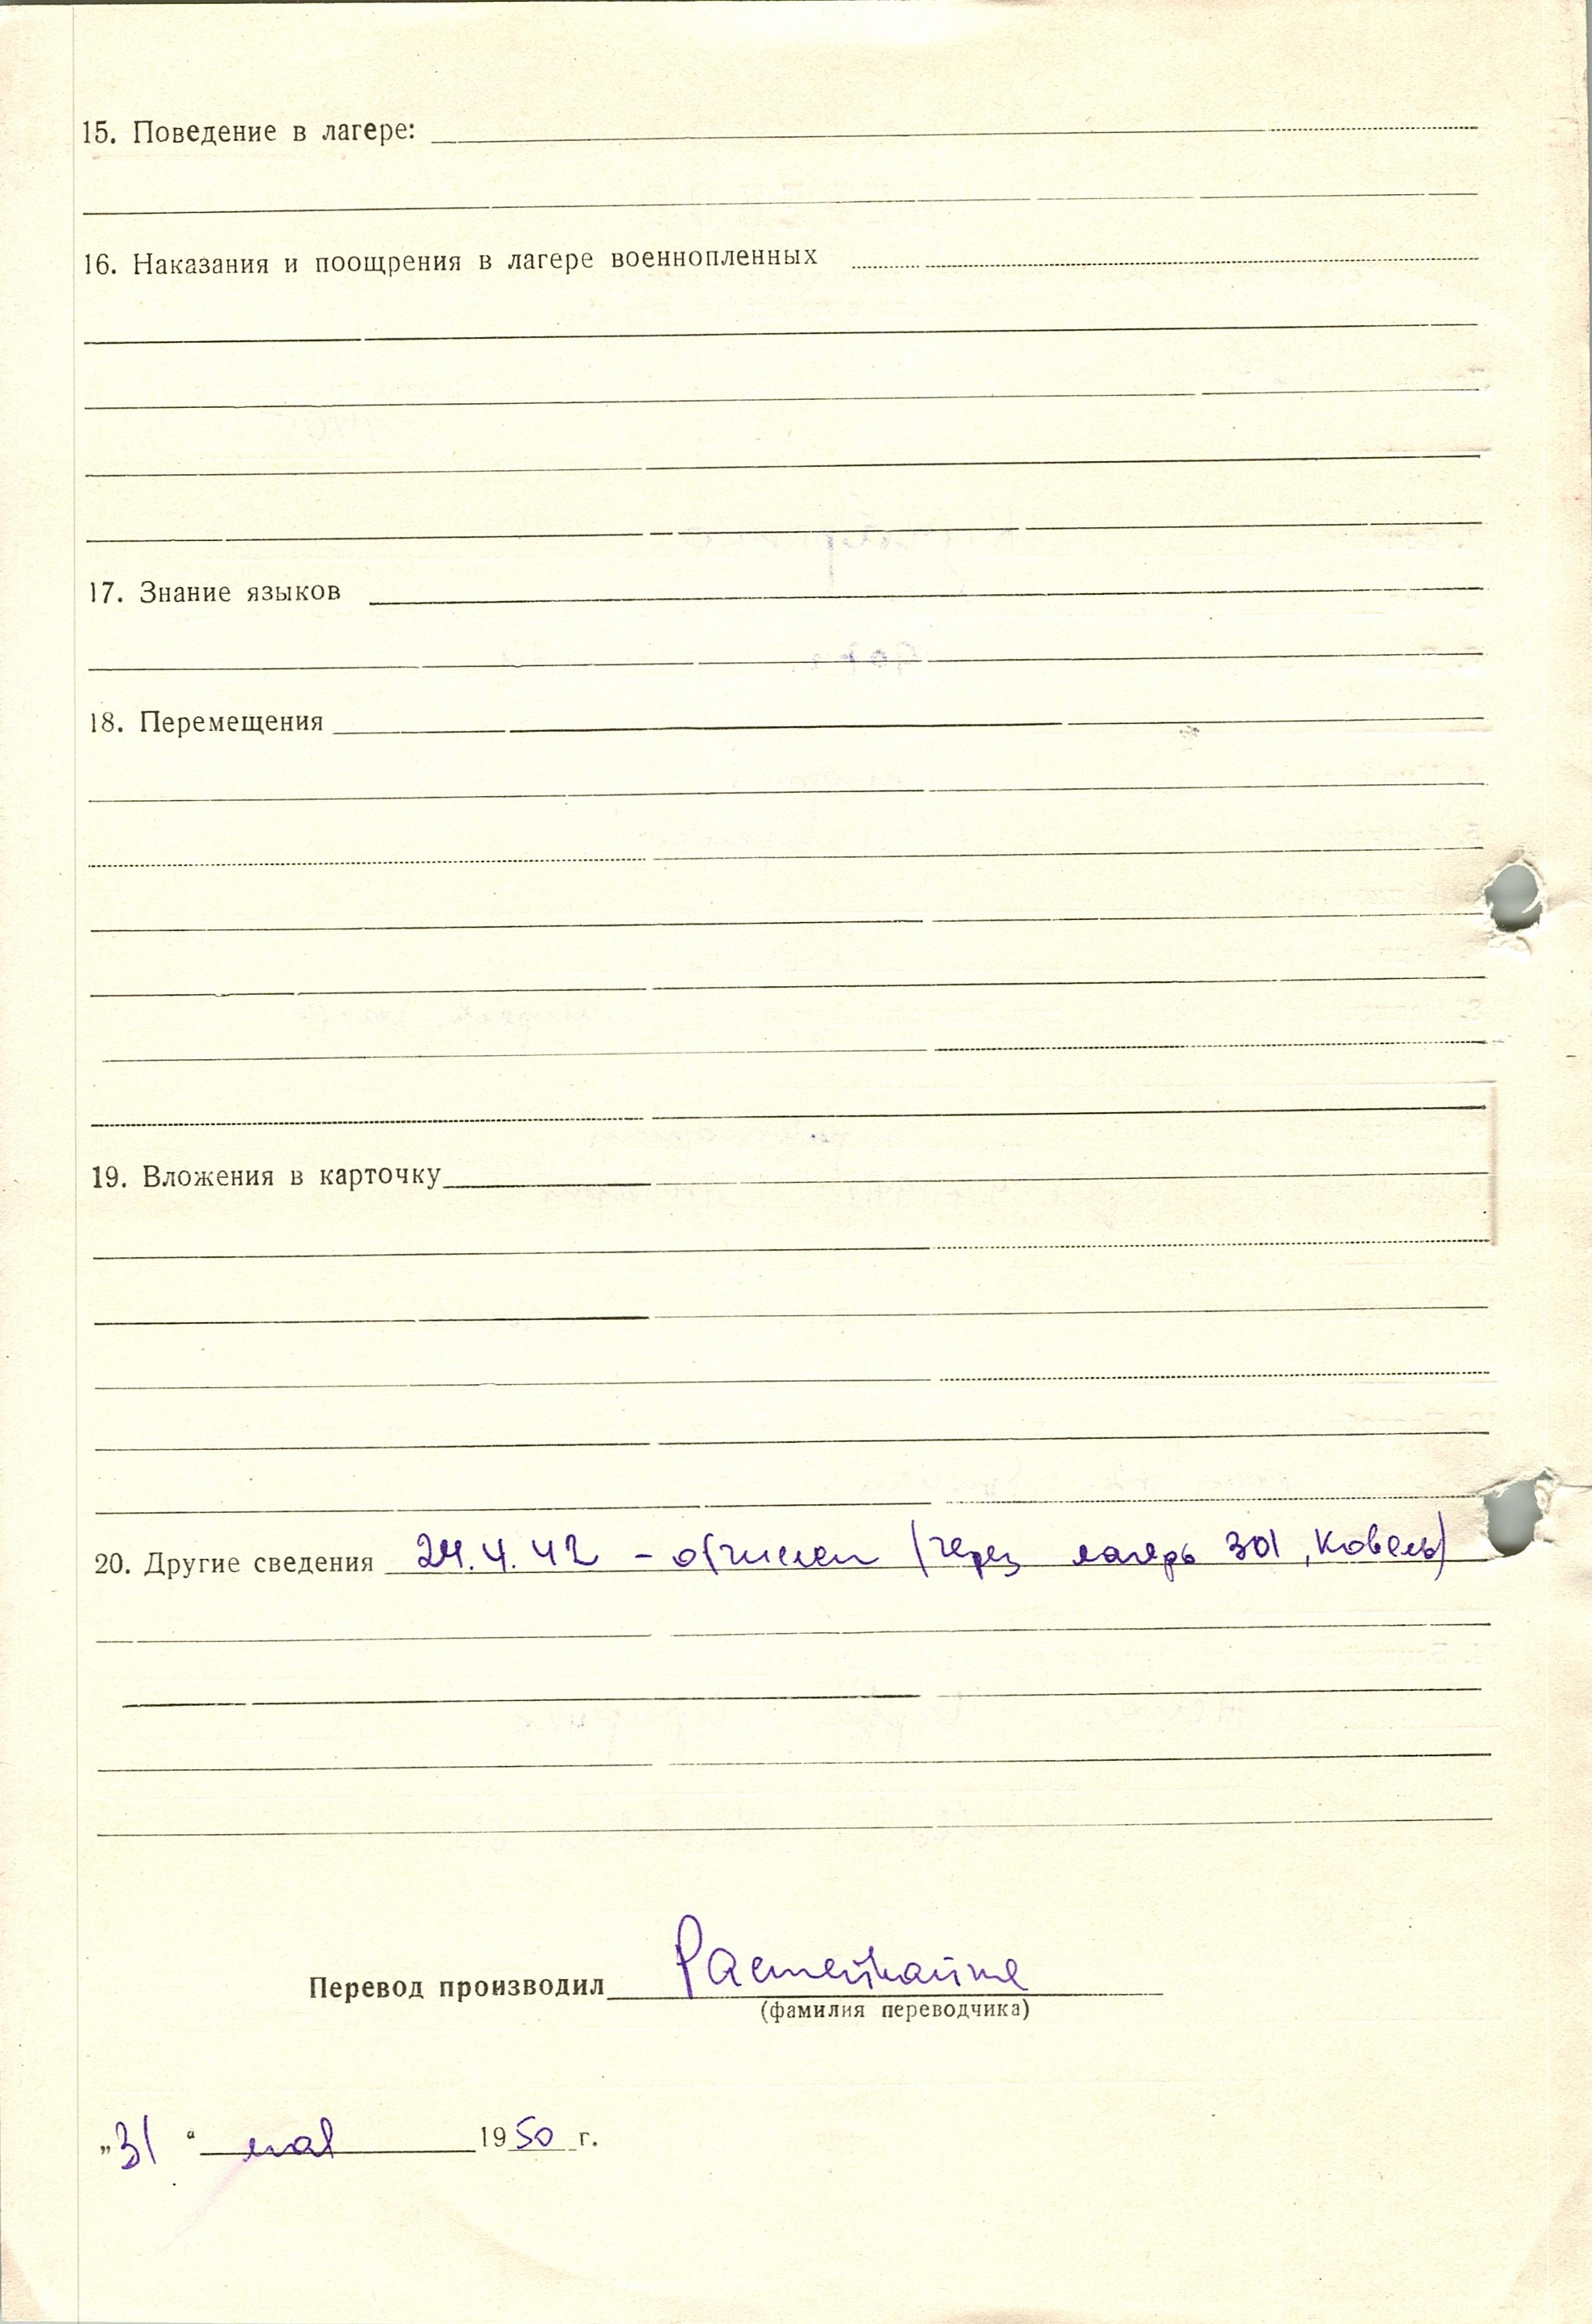 15. Поведение в лагере:
16. Наказания и поощрения в лагере военнопленных
17. Знание языков
18. Перемещения
19. Вложения в карточку
20. Другие сведения 24.4.42 – (через лагерь 301, Ковель)
Перевод производил
(фамилия переводчика)
„31“ мая 1950 г.